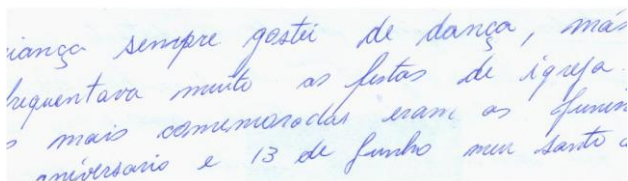 iança sempre gostei de dança, mas
frequentava muito as festas de igreja.
s mais comemoradas eram as
aniversario e 13 de Junho meu santo